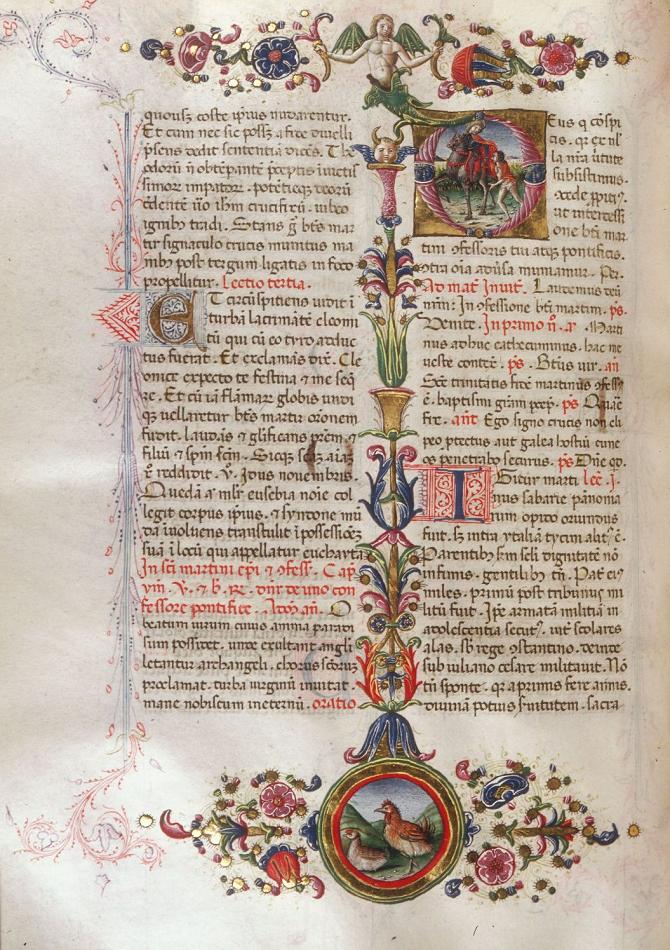 quousque coste ipius nudarentur.
Et cum nec sic posset a fide divelli
psens dedit sententiā dicēs. The
odorū ñ obtēpantē pceptis invictis
simor impator. potētieqz deorū
credente
igmbus tradi. Stans g̃ btēs mar
tir signaculo crucis munitus ma
nibz post tergum ligatis in foco
propellitur. Lectio tertia.
ET circūspitiens vidit ī
turba lacrimātē cleoni
cū qui cū eo tyro adduc
tus fuerat. Et exclamās dix̃. Cle
onice expecto te festina & me seq
re. Et cū iā flāmar globis undi
qz vellaretur btēs martir orōnem
fudit. laudās & glificans prēm
filiū & spm scm. Sicqz scām aiaz
reddidit. v. Idus novembris.
Quedā ā mlr eusebia noīe col
legit corpus ipius. & syndone mū
da ivoluens transtulit ī possessiōez
suā ī locū qui appellatur euchayta
In sci martini epi & ɔfess. Cap
ym. v. & b. R. dnr de uno con
fessore pontifice. Ad an. O
beatum virum cuius anima paradi
sum possidet. unde exultant angli
letantur archangeli. chorus scōruz
proclamat. turba virginū invitat.
mane nobiscum ineternū. oratio
DEus q cōspi
cis. qz ex nl
la nrā virtute
subsistimus.
ɔcede ppitiꝰ.
ut intercessi
one bti mar
tini ɔfessoris tui atqz pontificis.
ɔtra oīa adv̄sa muniamur. Per.
Ad mat̃ Invit. Laudemus deū
nrm: In ɔfessione bti martini. ps.
Venite. In primo n. a. Marti
nus adhuc cathecuminus. hac me
veste contex̃. ps. Btūs vir. añ
Scē trinitatis fidē martinus ɔfessꝰ
ē. baptismi grām pcep. ps Quāē
fre. añt Ego signo crucis non cli
peo ptectus aut galea hostiū cune
os penetrabo securus. ps Dñe qd.
IGitur marti lec̃. j.
nus sabarie panonia
rum opido oriundus
fuit. S; intra ytaliā tycini alitꝰ ē.
Parentibz sm seli dignitatē nō
infimis. gentilibz tñ. Pat̃ eiꝰ
miles. primū post tribunus mi
litū fuit. Ipe armatā militiā in
adolescentia secutꝰ. int̃ scolares
alas. sb rege ɔstantino. deinde
sub iuliano cesare militavit. Nō
tñ sponte. qz a primis fere annis.
divinā potius s̃vitutem. sacra